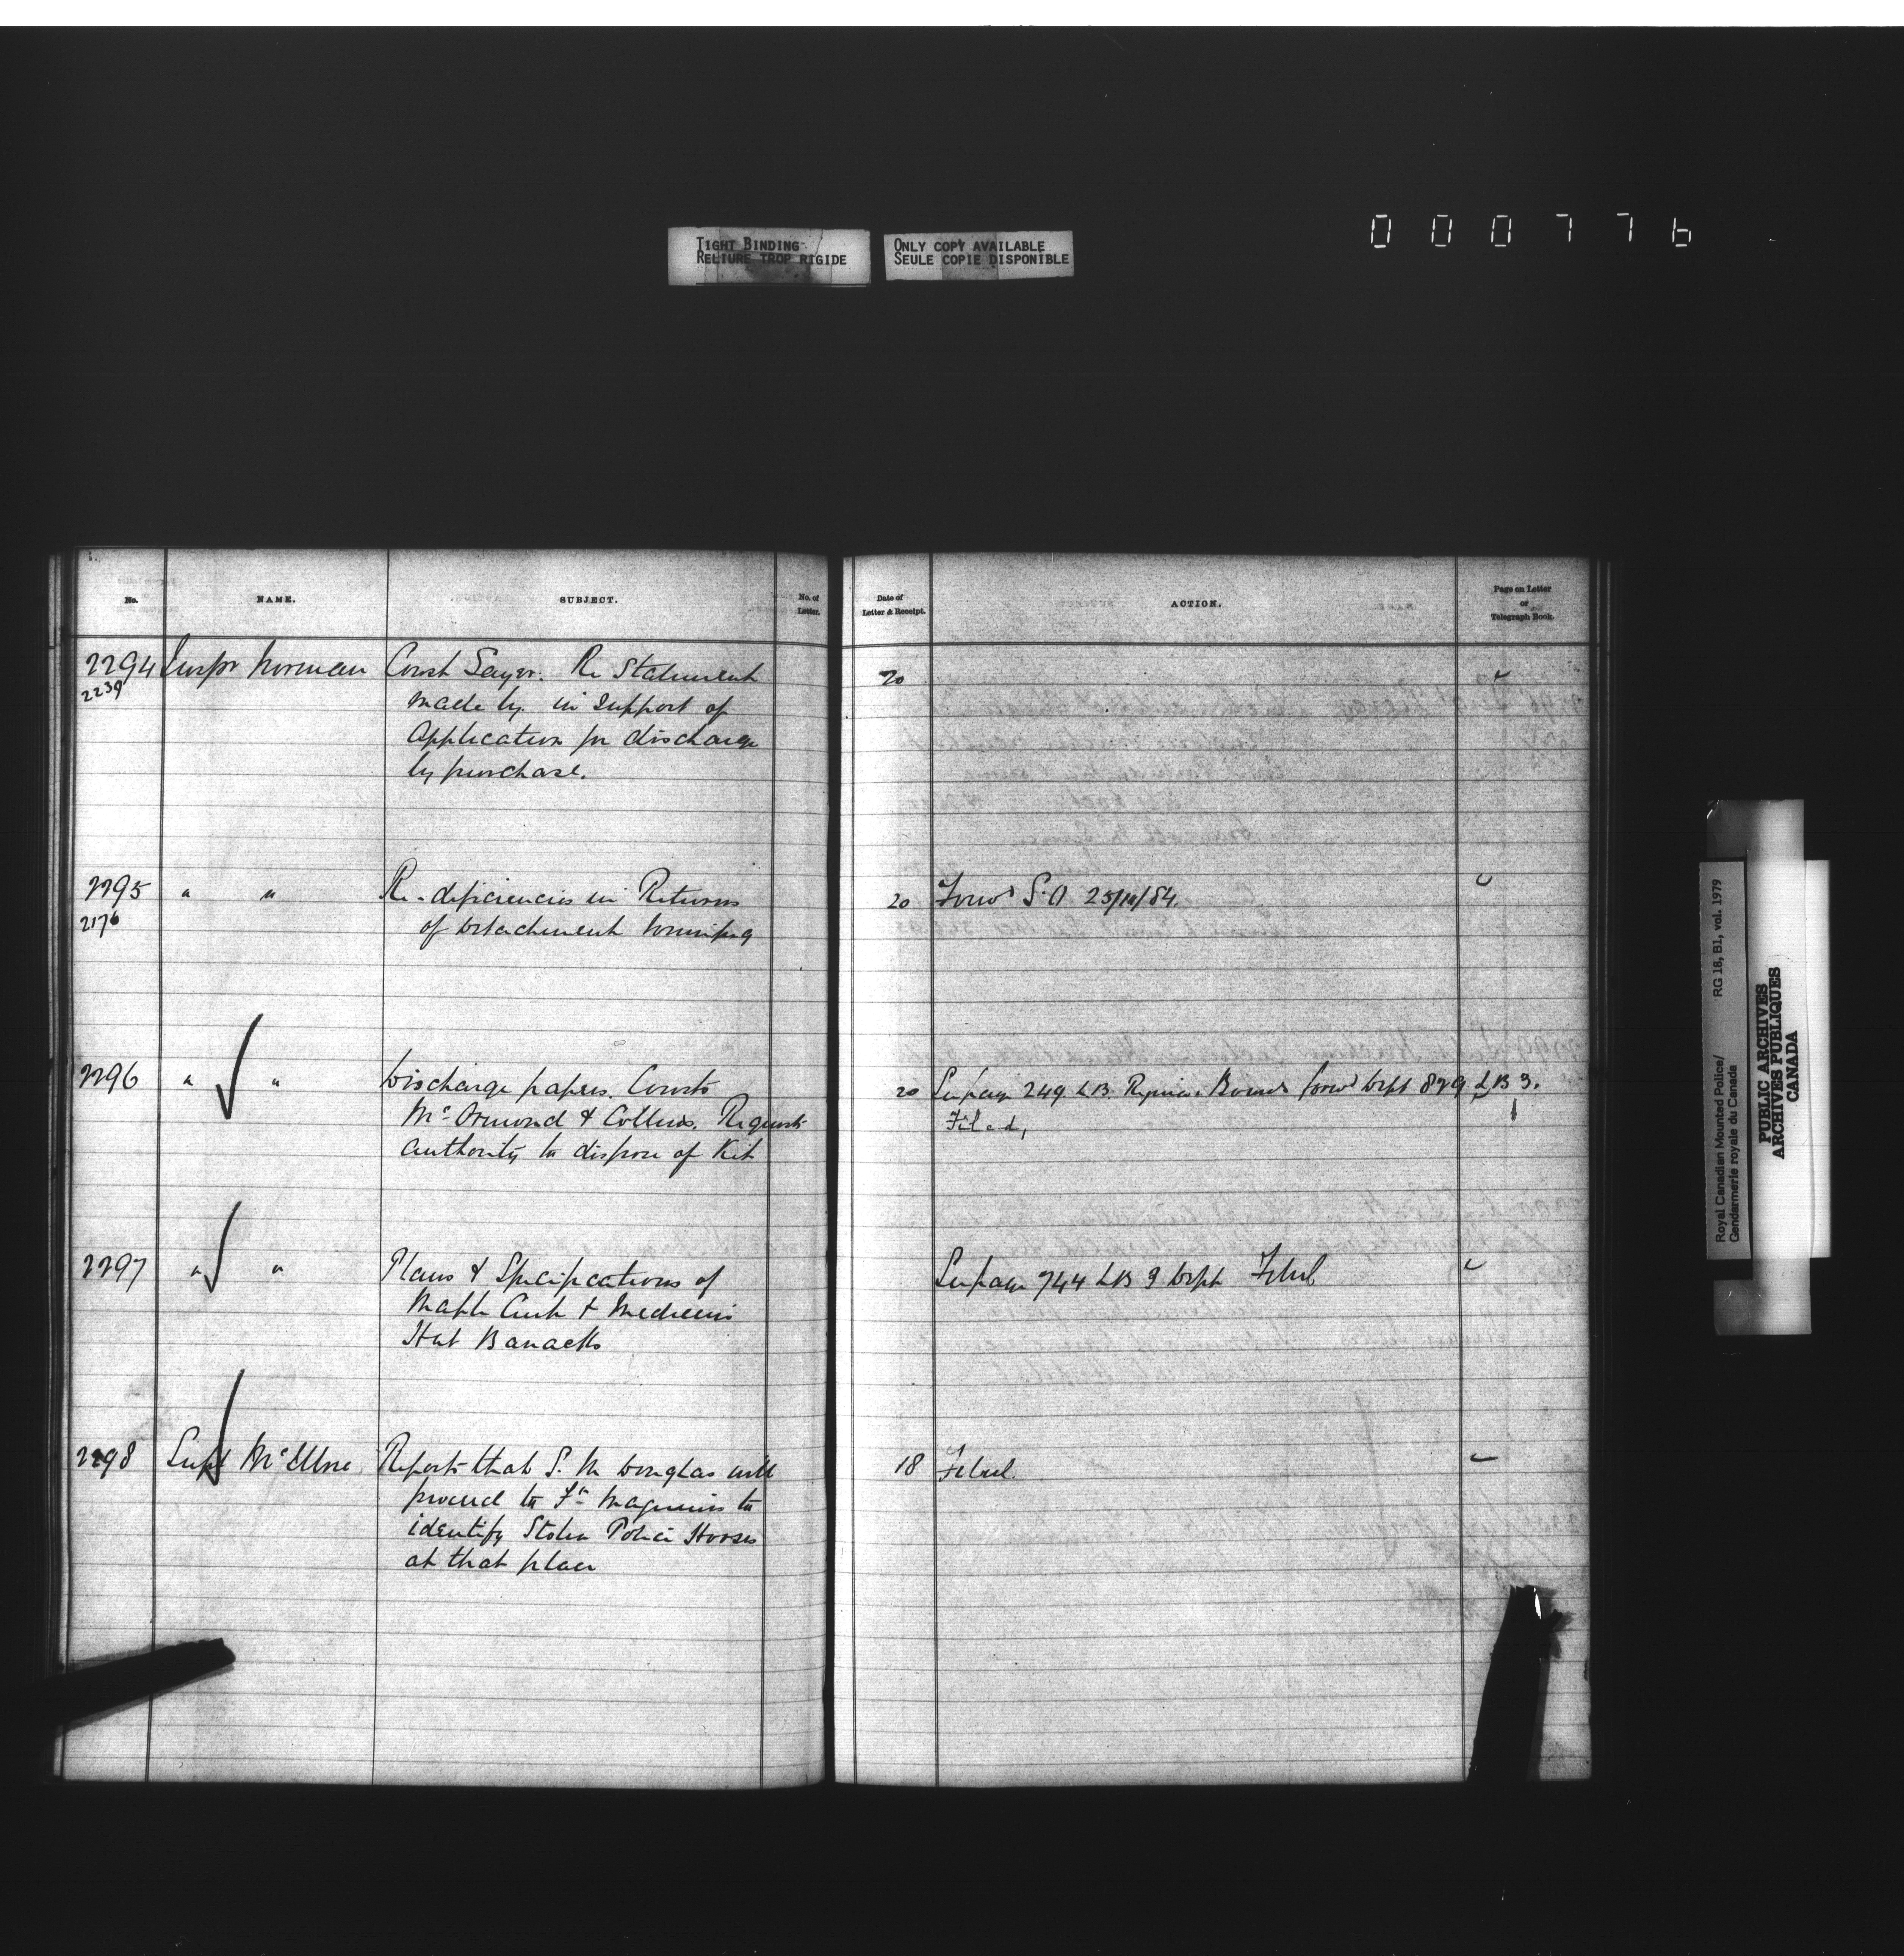 TIGHT BINDING
RELIURE TROP RIGIDE
ONLY COPY AVAILABLE
SEULE COPIE DISPONIBLE
000776
No. NAME. SUBJECT. No. of Letter.
Date of Letter & Receipt. ACTION. Page on Letter or Telegraph Book.
2294 Inspr Norman Const Sayer. Re Statement 20
2239 made by in support of
application for discharge
by purchase.
2295 " " Re-deficiencies in Returns 20 Forwd S.O 25/10/84.
2176 of Detachment Winnipeg
2296 " " Discharge papers. Consts 20 See page 249 LB. Regina. Forwd Dept 829 LB 3.
McOrmond & Collins. Requests Filed,
authority to dispose of Kit
2297 " " Plans & Specifications of See page 744 LB 9 Dept Filed
Maple Creek & Medicine
Hat Barracks
2298 Supt McIllree Reports that S. M Douglas will 18 Filed.
proceed to Ft Maginnis to
identify Stolen Police Horses
at that place
Royal Canadian Mounted Police/ RG 18, B1, vol. 1979
Gendarmerie royale du Canada
PUBLIC ARCHIVES
ARCHIVES PUBLIQUES
CANADA